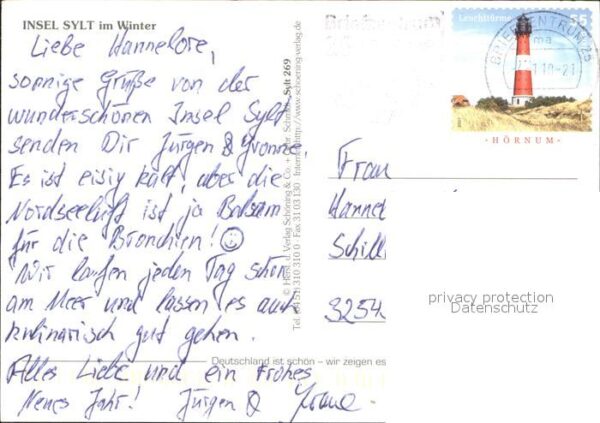 INSEL SYLT im Winter
Liebe Hannelore,
sonnige Grüße von der
wunderschönen Insel Sylt
senden Dir Jürgen & Yvonne.
Es ist eisig kalt, aber die
Nordseeluft ist ja Balsam
für die Bronchien! ☺
Wir laufen jeden Tag schön
am Meer und lassen es auch
kulinarisch gut gehen.
Alles Liebe und ein frohes
Neues Jahr! Jürgen & Yvonne
Sylt 269
© Herst. u. Verlag Schöning & Co. + Schmidt
Tel. 04 51/ 310 310 0 · Fax 31 03 130 · Internet http://www.schoening-verlag.de
Deutschland ist schön – wir zeigen es
Leuchttürme 55
BRIEFZENTRUM 25
ma
HÖRNUM
Frau
Hannel
Schill
3254
privacy protection
Datenschutz